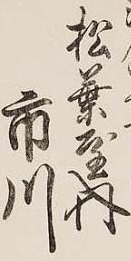 松葉屋内
市川